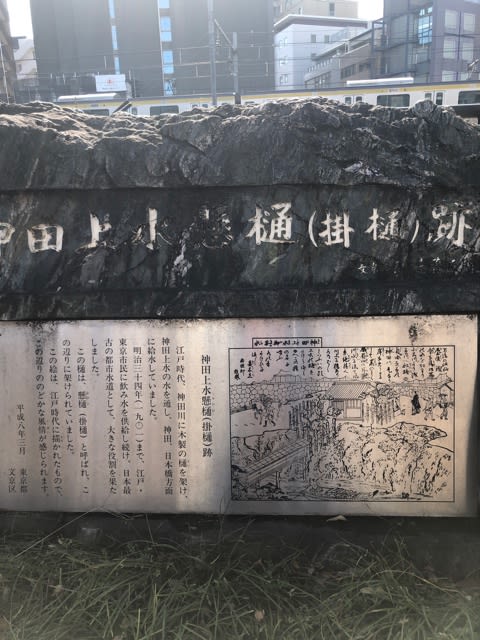 神田上水懸樋(掛樋)跡
神田上水懸樋(掛樋)跡
江戸時代、神田川に木製の樋を架け、
神田上水の水を通し、神田、日本橋方面
に給水していました。
明治三十四年(一九〇一)まで、江戸・
東京市民に飲み水を供給し続け、日本最
古の都市水道として、大きな役割を果た
しました。
この樋は、懸樋(掛樋)と呼ばれ、こ
の辺りに架けられていました。
この絵は、江戸時代に描かれたもので、
この辺りののどかな風情が感じられます。
平成八年三月
東京都
文京区